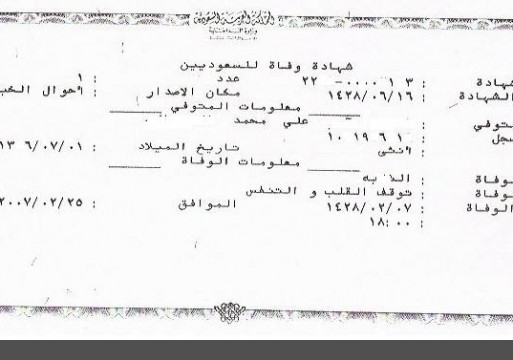 المملكة العربية السعودية
وزارة الداخلية
شهادة وفاة للسعوديين
هادة : ٢٢ -٠٠٠٠ ١ ٣ عدد : ١
الشهادة : ١٤٢٨/٠٦/١٦ مكان الاصدار : احوال الخب
معلومات المتوفي
توفي : علي محمد
سجل : ١٠ ١٩ ٦ ١
: انثى تاريخ الميلاد : ١٣ ٦/٠٧/٠١
معلومات الوفاة
وفاة :
وفاة : توقف القلب و التنفس
الوفاة : ١٤٢٨/٠٢/٠٧ الموافق : ٢٠٠٧/٠٢/٢٥
: ١٨:٠٠